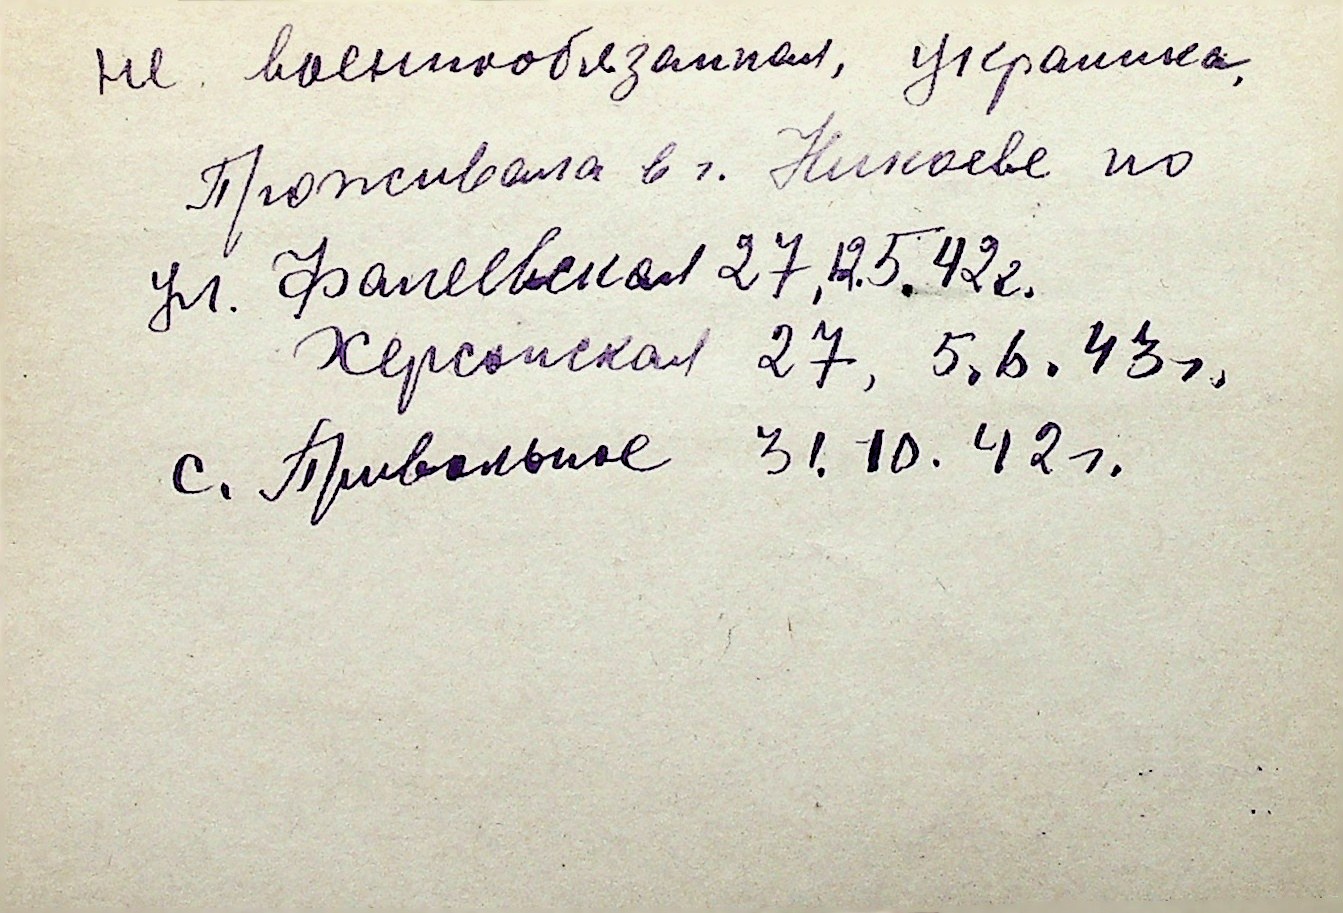 не военнообязанная, украинка,
Проживала в г. Никоеве по
ул. Фалеевская 27, 12.5.42г.
Херсонская 27, 5.6.43г.
с. Привольное 31.10.42г.